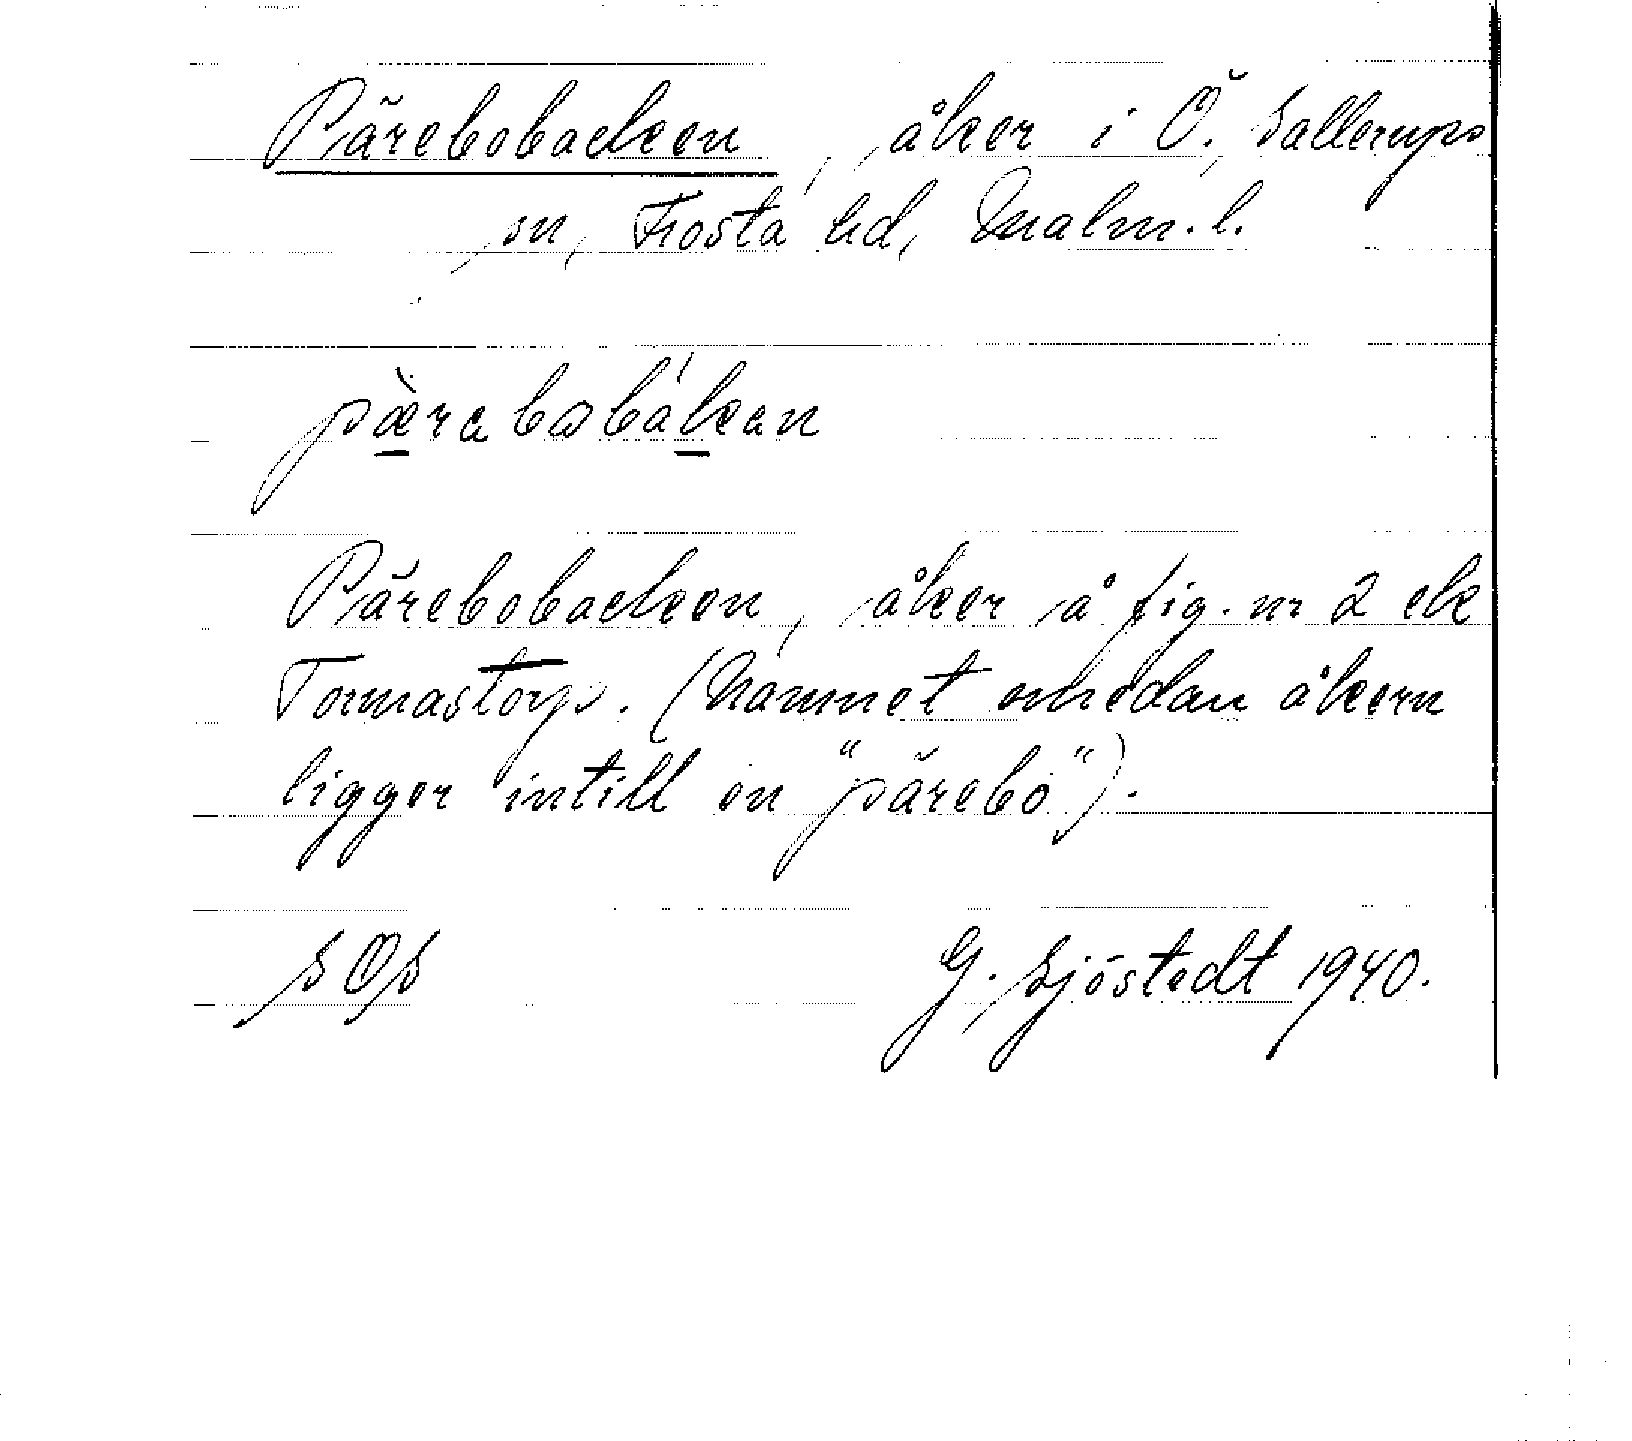 Pärebobacken, åker i Ö. Sallerups
sn, Frosta hd, Malm. l.
Pärebobacken, åker å fig. nr 2 ek
Tormastorp. (Namnet emedan åkern
ligger intill en "pärebo").
SOS G. Sjöstedt 1940.